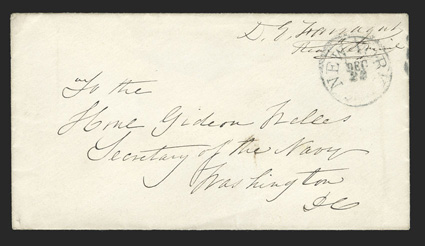 D. G. Farragut
Rear Admiral
NEW YORK
DEC
22
To the
Honl Gideon Welles
Secretary of the Navy
Washington
DC